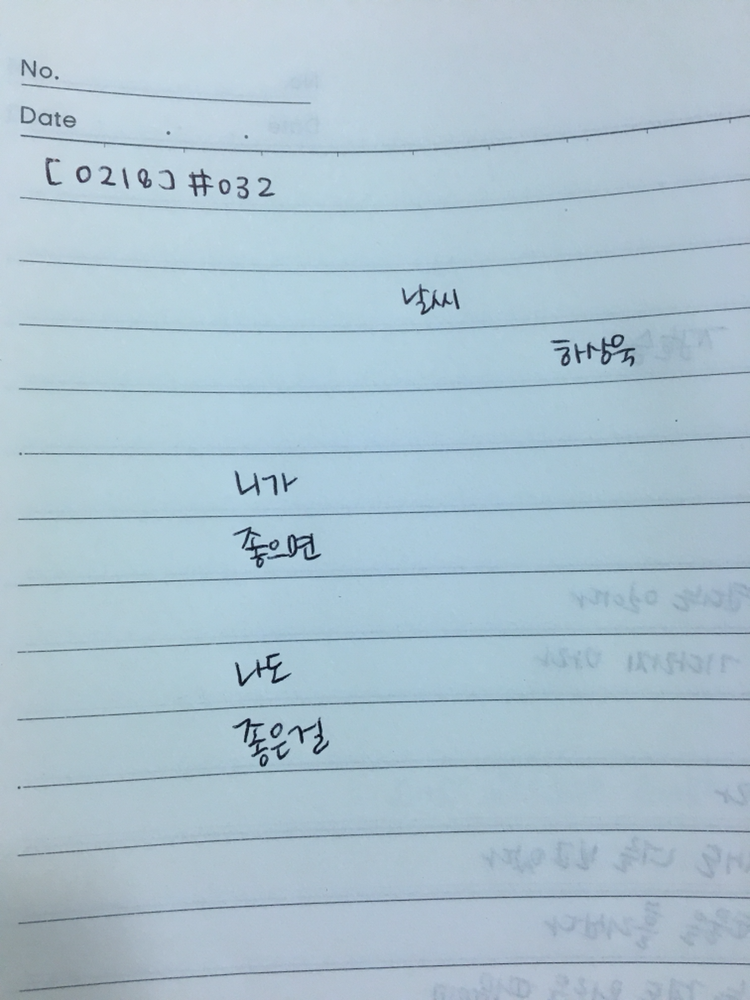 No.
Date . .
[0218] #032
날씨
하상욱
니가
좋으면
나도
좋은걸